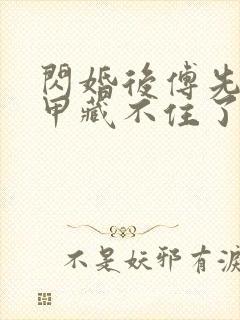 閃婚後傅先
甲藏不住了
不是妖邪有淚